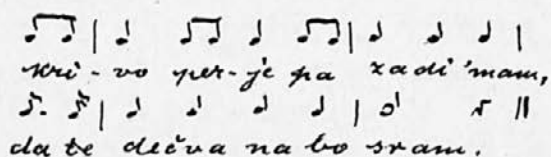 kri-vo per-je pa zadi'mam,
da te dečva na bo sram.